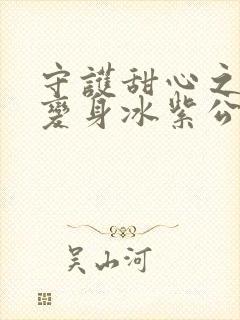 守護甜心之
變身冰紫公
吴山河